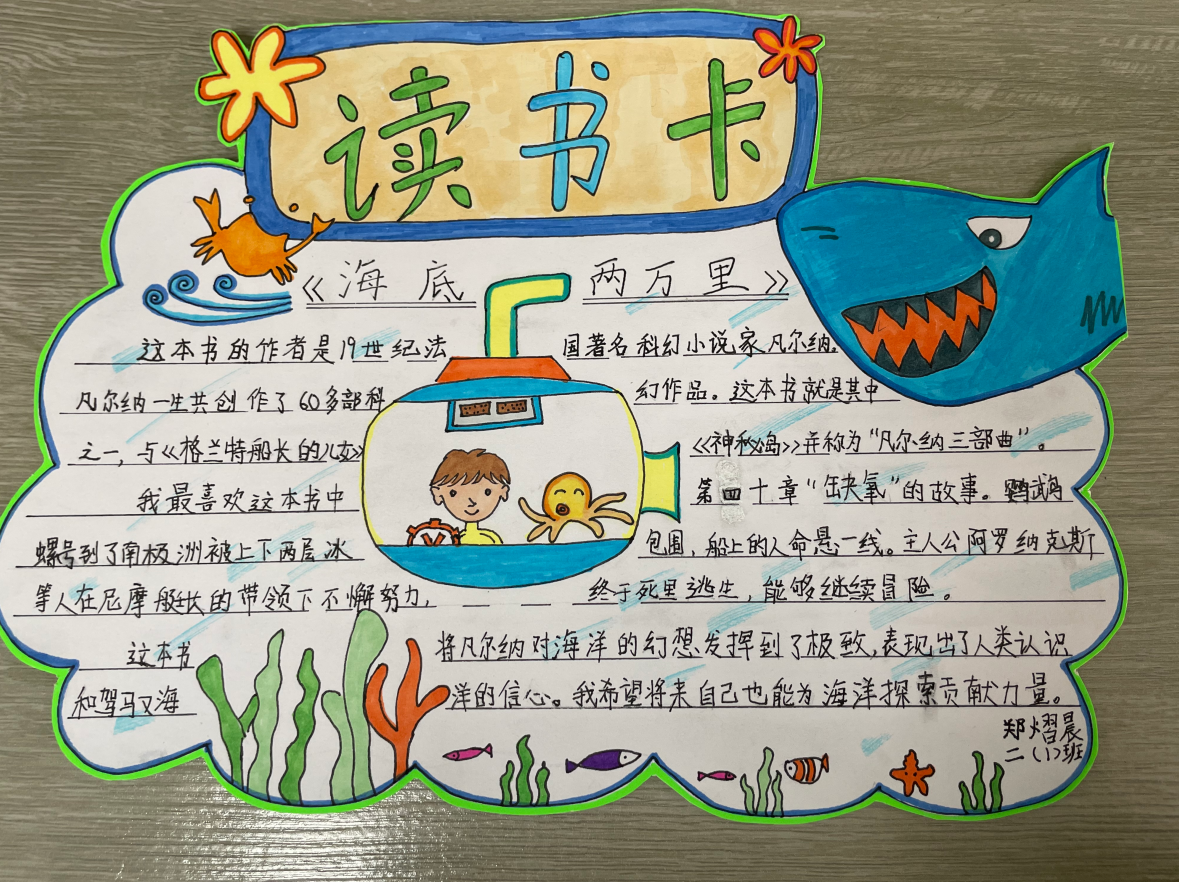 读书卡
《海底两万里》
这本书的作者是19世纪法国著名科幻小说家凡尔纳。
凡尔纳一生共创作了60多部科幻作品。这本书就是其中
之一,与《格兰特船长的儿女》《神秘岛》并称为"凡尔纳三部曲"。
我最喜欢这本书中第四十章"缺氧"的故事。鹦鹉
螺号到了南极洲被上下两层冰包围,船上的人命悬一线。主人公阿罗纳克斯
等人在尼摩船长的带领下不懈努力,终于死里逃生,能够继续冒险。
这本书将凡尔纳对海洋的幻想发挥到了极致,表现出了人类认识
和驾驭海洋的信心。我希望将来自己也能为海洋探索贡献力量。
郑熠晨
二(1)班